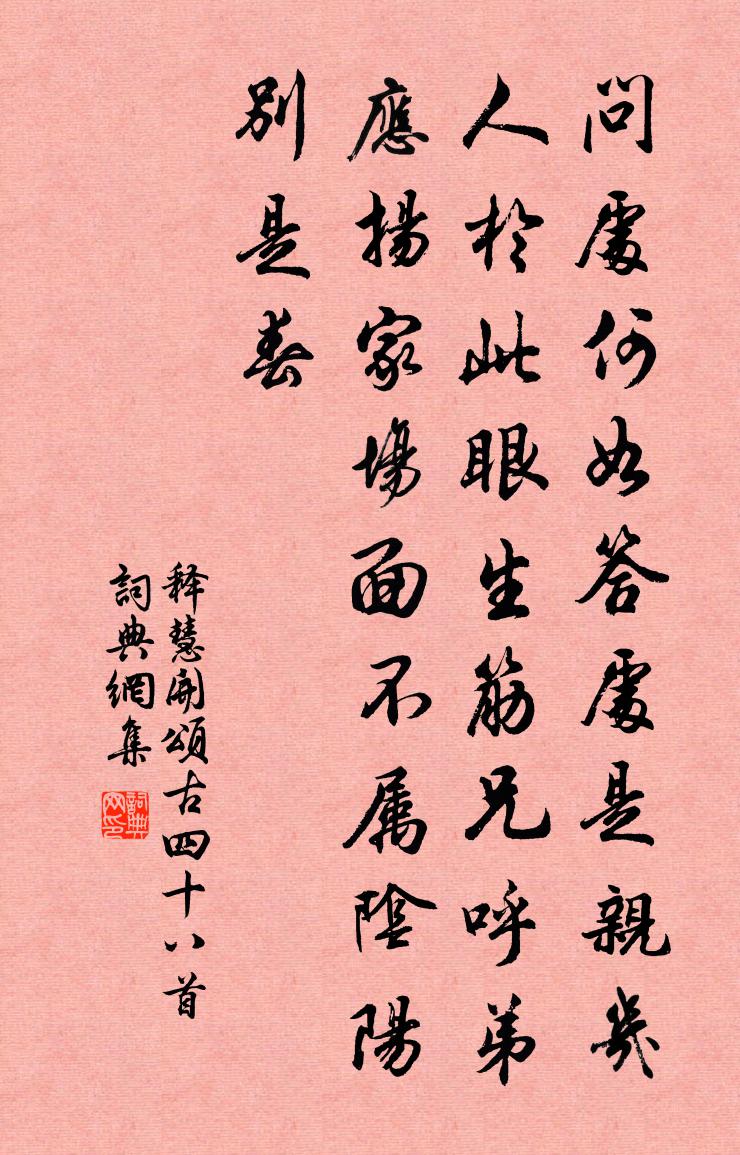 問處何如答處是親幾
人於此眼生筋兄呼弟
應揚家場面不属陰陽
別是春
释慧開頌古四十八首
詞典網集
詞典网印